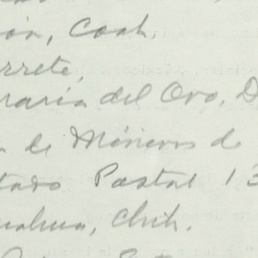 ón, Coah.
rrete,
raría del Oro, D
de Mineros de
tado Postal 13
uahua, Chih.